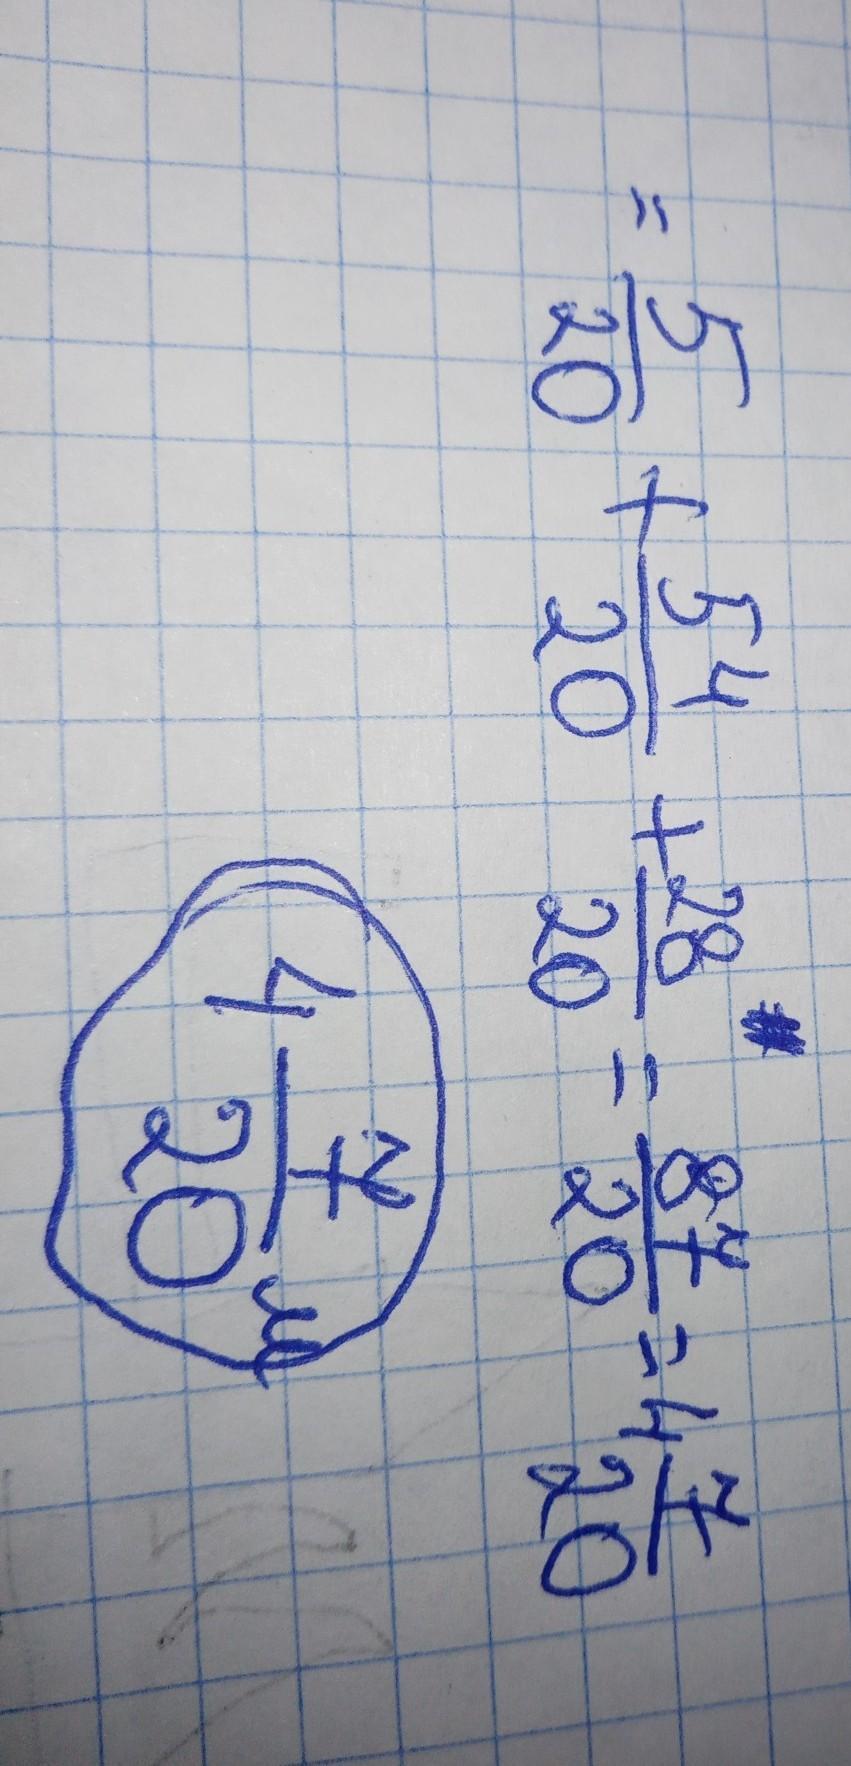 = 5/20 + 54/20 + 28/20 = 87/20 = 4 7/20
4 7/20